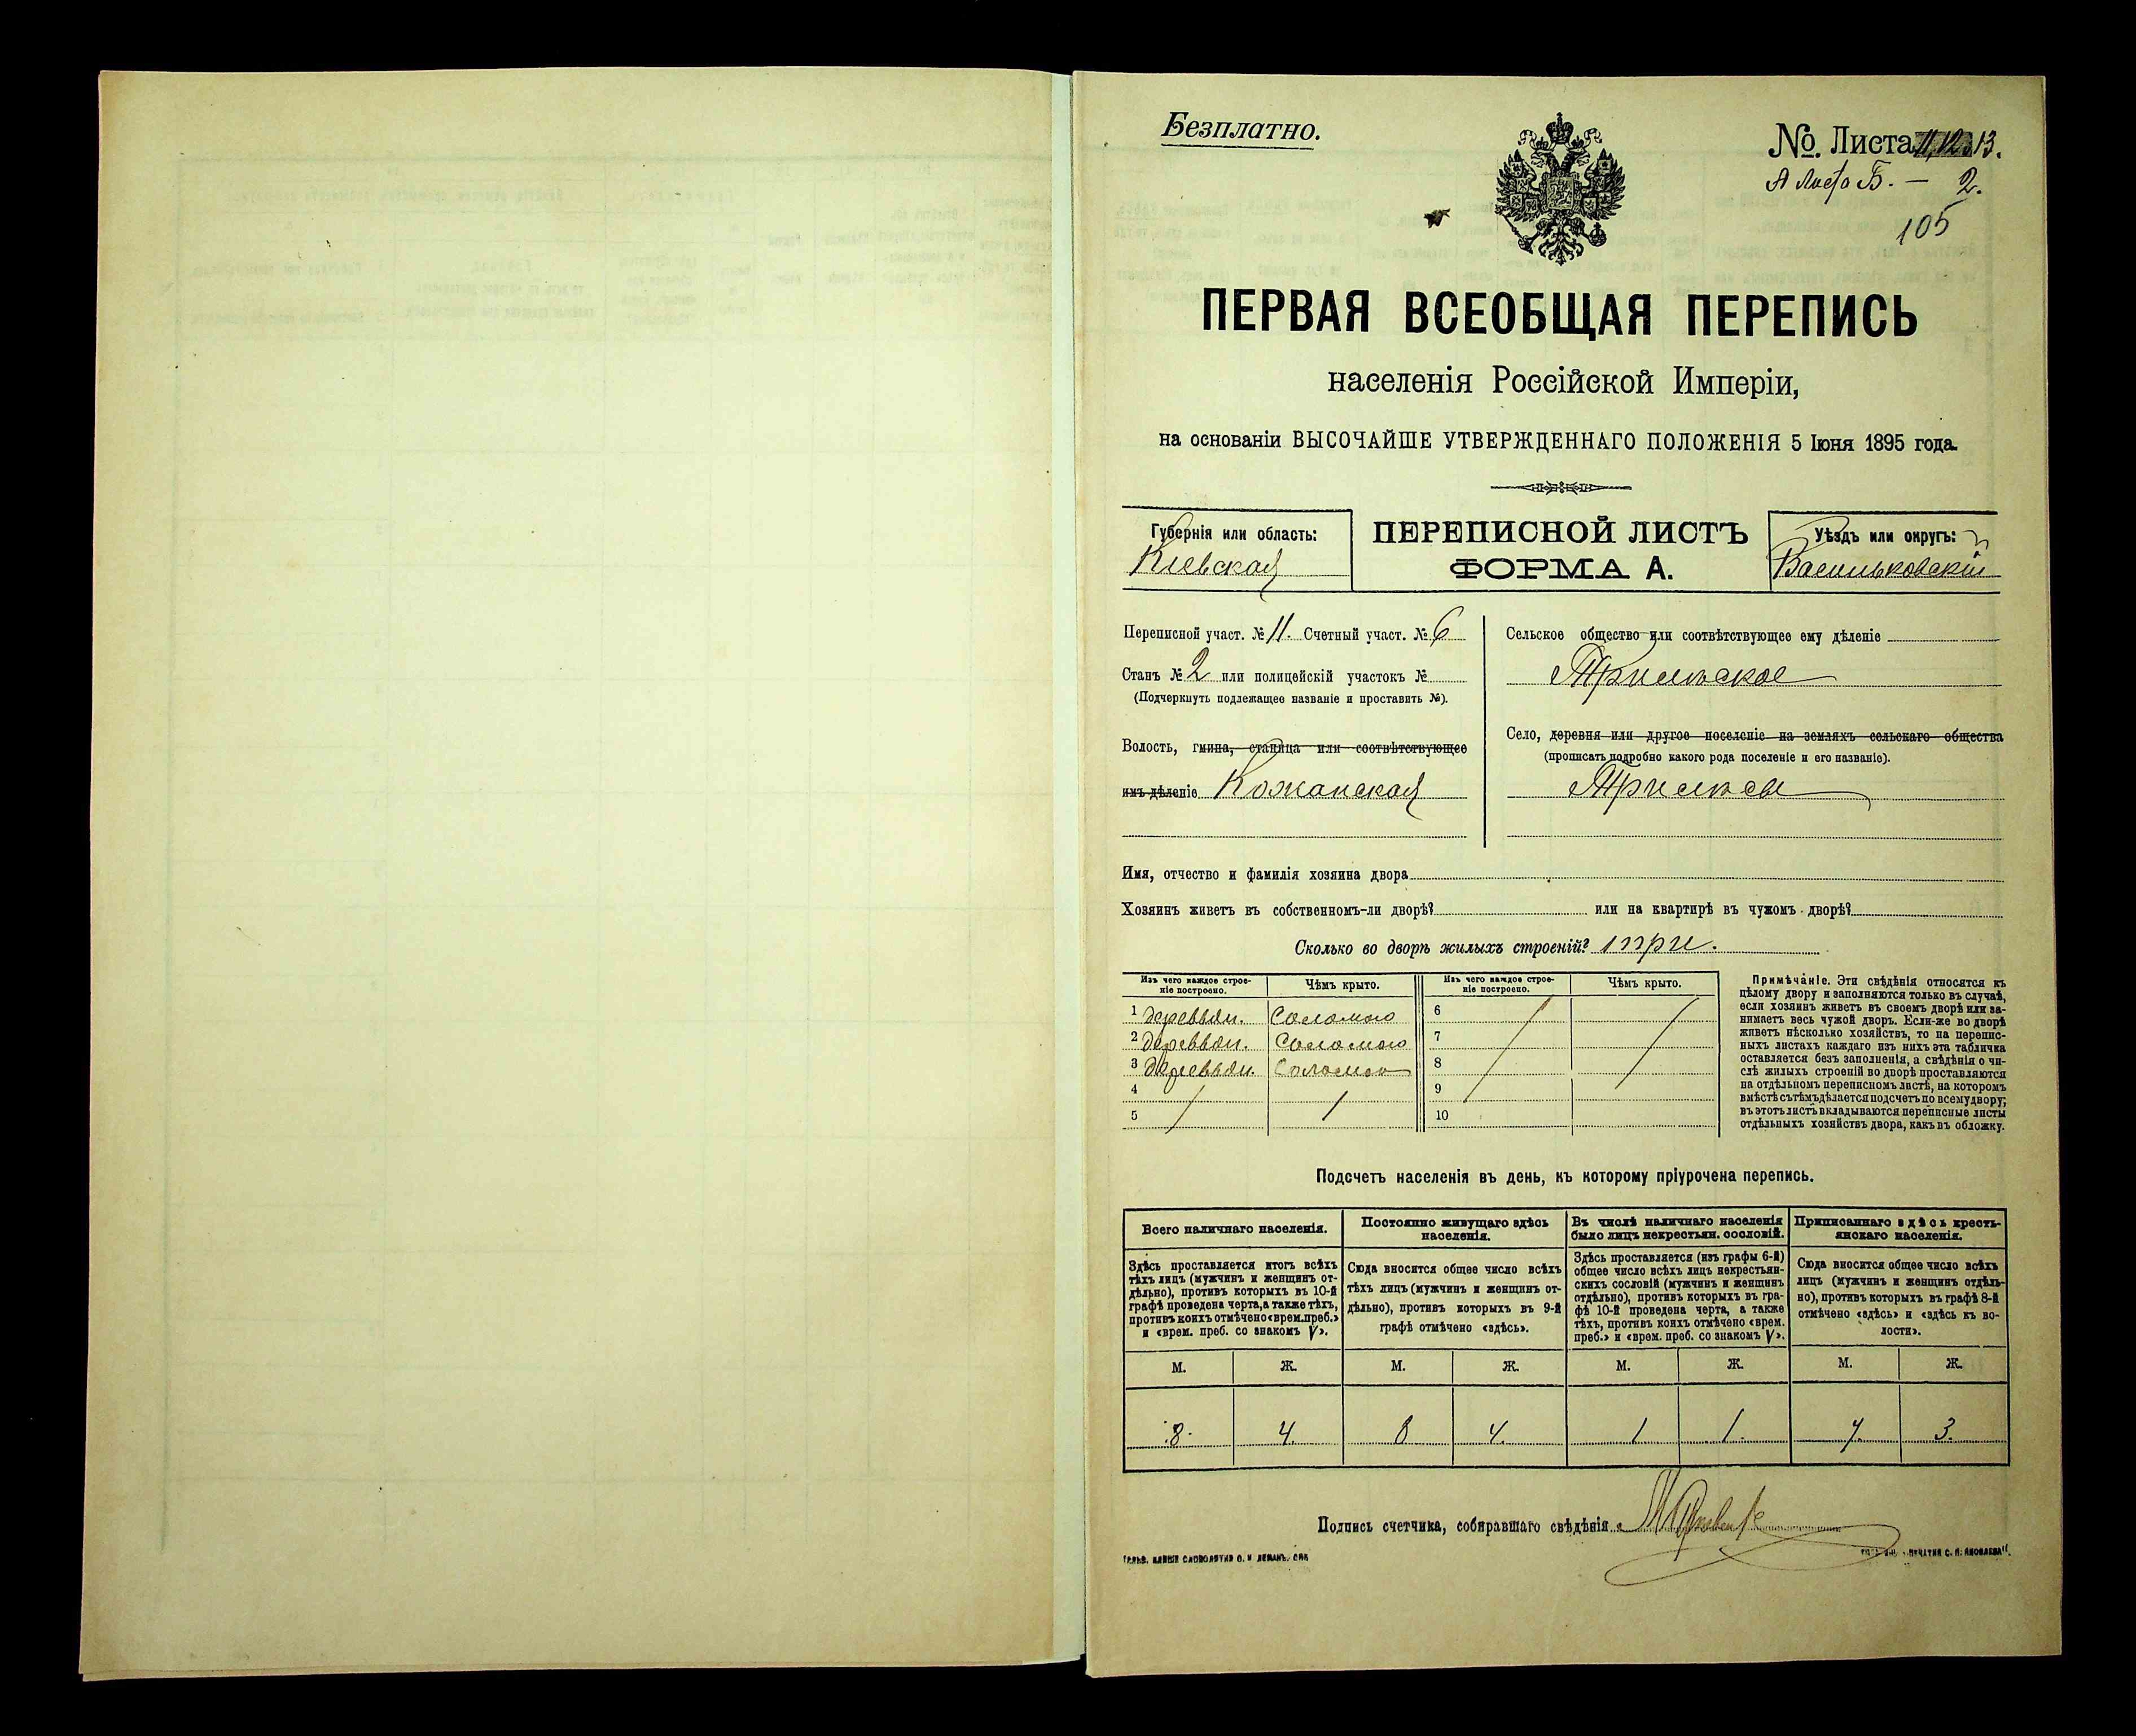 Безплатно.
№. Листа 11, 12, 13.
А Листа Б. — 2.
105
ПЕРВАЯ ВСЕОБЩАЯ ПЕРЕПИСЬ
населенія Россійской Имперіи,
на основаніи ВЫСОЧАЙШЕ УТВЕРЖДЕННАГО ПОЛОЖЕНІЯ 5 Іюня 1895 года.
Губернія или область:
Кіевская
ПЕРЕПИСНОЙ ЛИСТЪ
ФОРМА А.
Уѣздъ или округъ:
Васильковскій
Переписной участ. № 11. Счетный участ. № 6
Станъ № 2 или полицейскій участокъ №
(Подчеркнуть подлежащее названіе и проставить №).
Волость, гмина, станица или соотвѣтствующее
имъ дѣленіе Кожанская
Сельское общество или соотвѣтствующее ему дѣленіе
Трилѣское
Село, деревня или другое поселеніе на земляхъ сельскаго общества
(прописать подробно какого рода поселеніе и его названіе).
Трилѣсы
Имя, отчество и фамилія хозяина двора
Хозяинъ живетъ въ собственномъ-ли дворѣ? или на квартирѣ въ чужомъ дворѣ?
Сколько во дворѣ жилыхъ строеній? три.
Изъ чего каждое строе-
ніе построено.
Чѣмъ крыто.
1 деревян. Соломою
2 деревян. Соломою
3 деревян. Соломою
4
5
Изъ чего каждое строе-
ніе построено.
Чѣмъ крыто.
6
7
8
9
10
Примѣчаніе. Эти свѣдѣнія относятся къ
цѣлому двору и заполняются только въ случаѣ,
если хозяинъ живетъ въ своемъ дворѣ или за-
нимаетъ весь чужой дворъ. Если-же во дворѣ
живетъ нѣсколько хозяйствъ, то на перепис-
ныхъ листахъ каждаго изъ нихъ эта табличка
оставляется безъ заполненія, а свѣдѣнія о чи-
слѣ жилыхъ строеній во дворѣ проставляются
на отдѣльномъ переписномъ листѣ, на которомъ
вмѣстѣ съ тѣмъ дѣлается подсчетъ по всему двору;
въ этотъ листъ вкладываются переписные листы
отдѣльныхъ хозяйствъ двора, какъ въ обложку.
Подсчетъ населенія въ день, къ которому пріурочена перепись.
Всего наличнаго населенія.
Здѣсь проставляется итогъ всѣхъ
тѣхъ лицъ (мужчинъ и женщинъ от-
дѣльно), противъ которыхъ въ 10-й
графѣ проведена черта, а также тѣхъ,
противъ коихъ отмѣчено «врем. преб.»
и «врем. преб. со знакомъ V».
М. Ж.
8 4
Постоянно живущаго здѣсь
населенія.
Сюда вносится общее число всѣхъ
тѣхъ лицъ (мужчинъ и женщинъ от-
дѣльно), противъ которыхъ въ 9-й
графѣ отмѣчено «здѣсь».
М. Ж.
8 4
Въ числѣ наличнаго населенія
было лицъ некрестьян. сословій.
Здѣсь проставляется (изъ графы 6-й)
общее число всѣхъ лицъ некрестьян-
скихъ сословій (мужчинъ и женщинъ
отдѣльно), противъ которыхъ въ гра-
фѣ 10-й проведена черта, а также
тѣхъ, противъ коихъ отмѣчено «врем.
преб.» и «врем. преб. со знакомъ V».
М. Ж.
1 1.
Приписаннаго здѣсь кресть-
янскаго населенія.
Сюда вносится общее число всѣхъ
лицъ (мужчинъ и женщинъ отдѣль-
но), противъ которыхъ въ графѣ 8-й
отмѣчено «здѣсь» и «здѣсь къ во-
лости».
М. Ж.
7. 3.
Подпись счетчика, собиравшаго свѣдѣнія